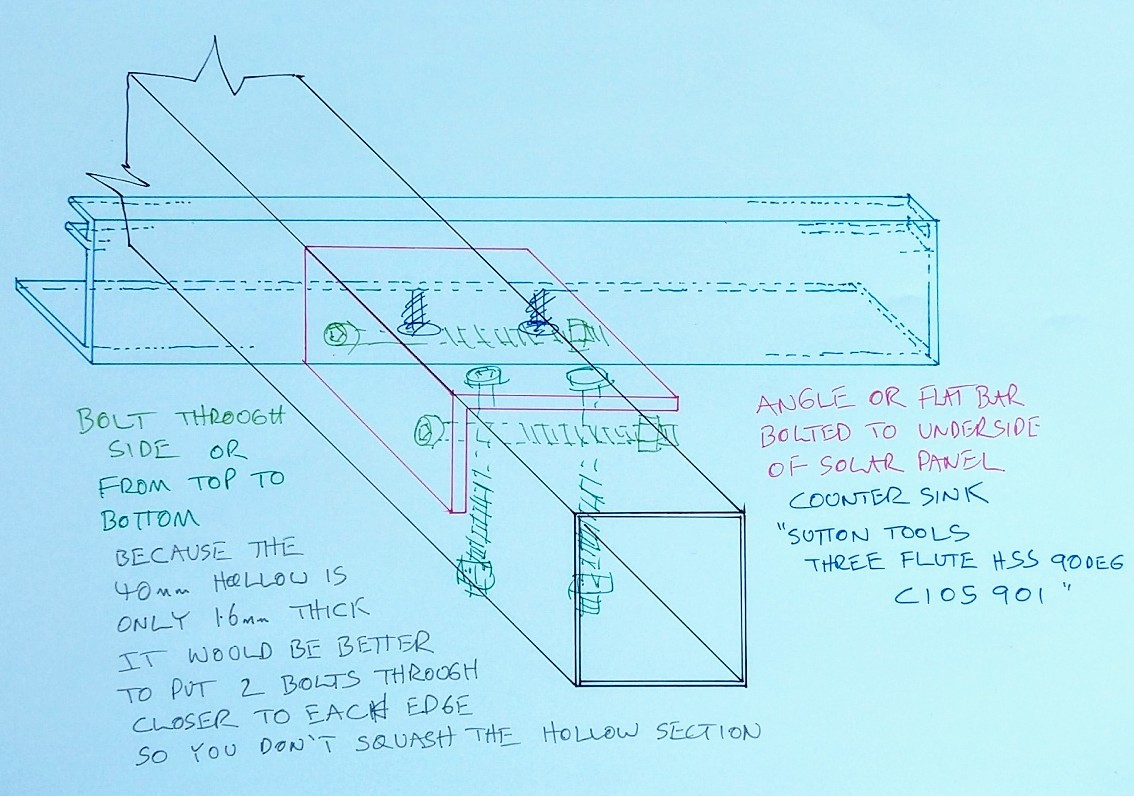 BOLT THROOGH
SIDE OR
FROM TOP TO
BOTTOM
BECAUSE THE
40mm HOLLOW IS
ONLY 1.6mm THICK
IT WOULD BE BETTER
TO PUT 2 BOLTS THROOGH
CLOSER TO EACH EDGE
SO YOU DON'T SQUASH THE HOLLOW SECTION
ANGLE OR FLAT BAR
BOLTED TO UNDERSIDE
OF SOLAR PANEL
COUNTER SINK
"SUTTON TOOLS
THREE FLUTE HSS 90DEG
C105 901"